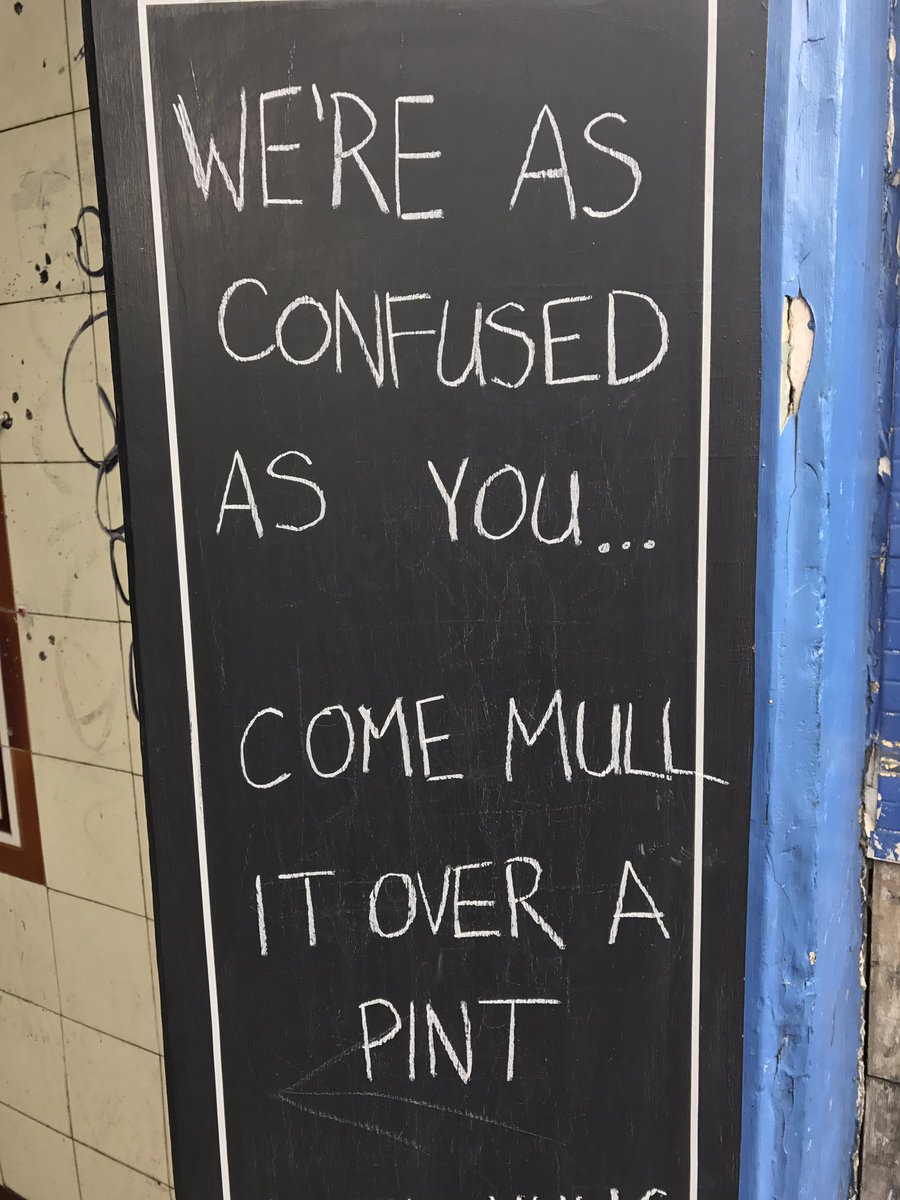 WE'RE AS
CONFUSED
AS YOU...
COME MULL
IT OVER A
PINT